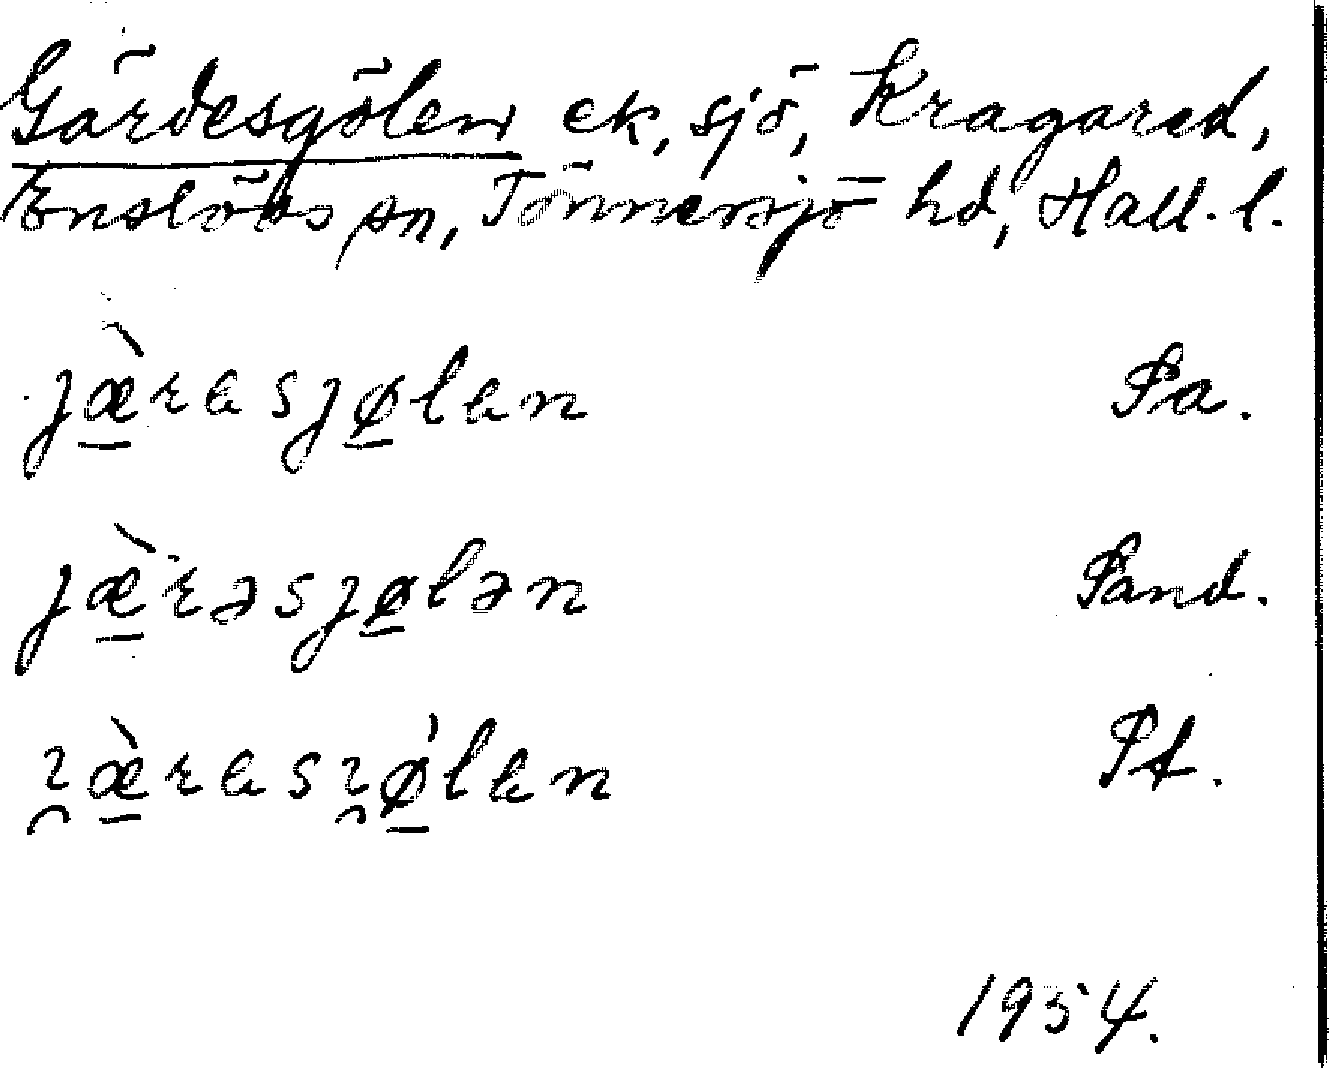 Gärdesgölen ek, sjö, Kragared,
Enslövs sn, Tönnersjö hd, Hall. l.
jæ̀rasjølan Pa.
jæ̀rəsjølən Sand.
ɀæ̀rasɀǿlan Pt.
1954.